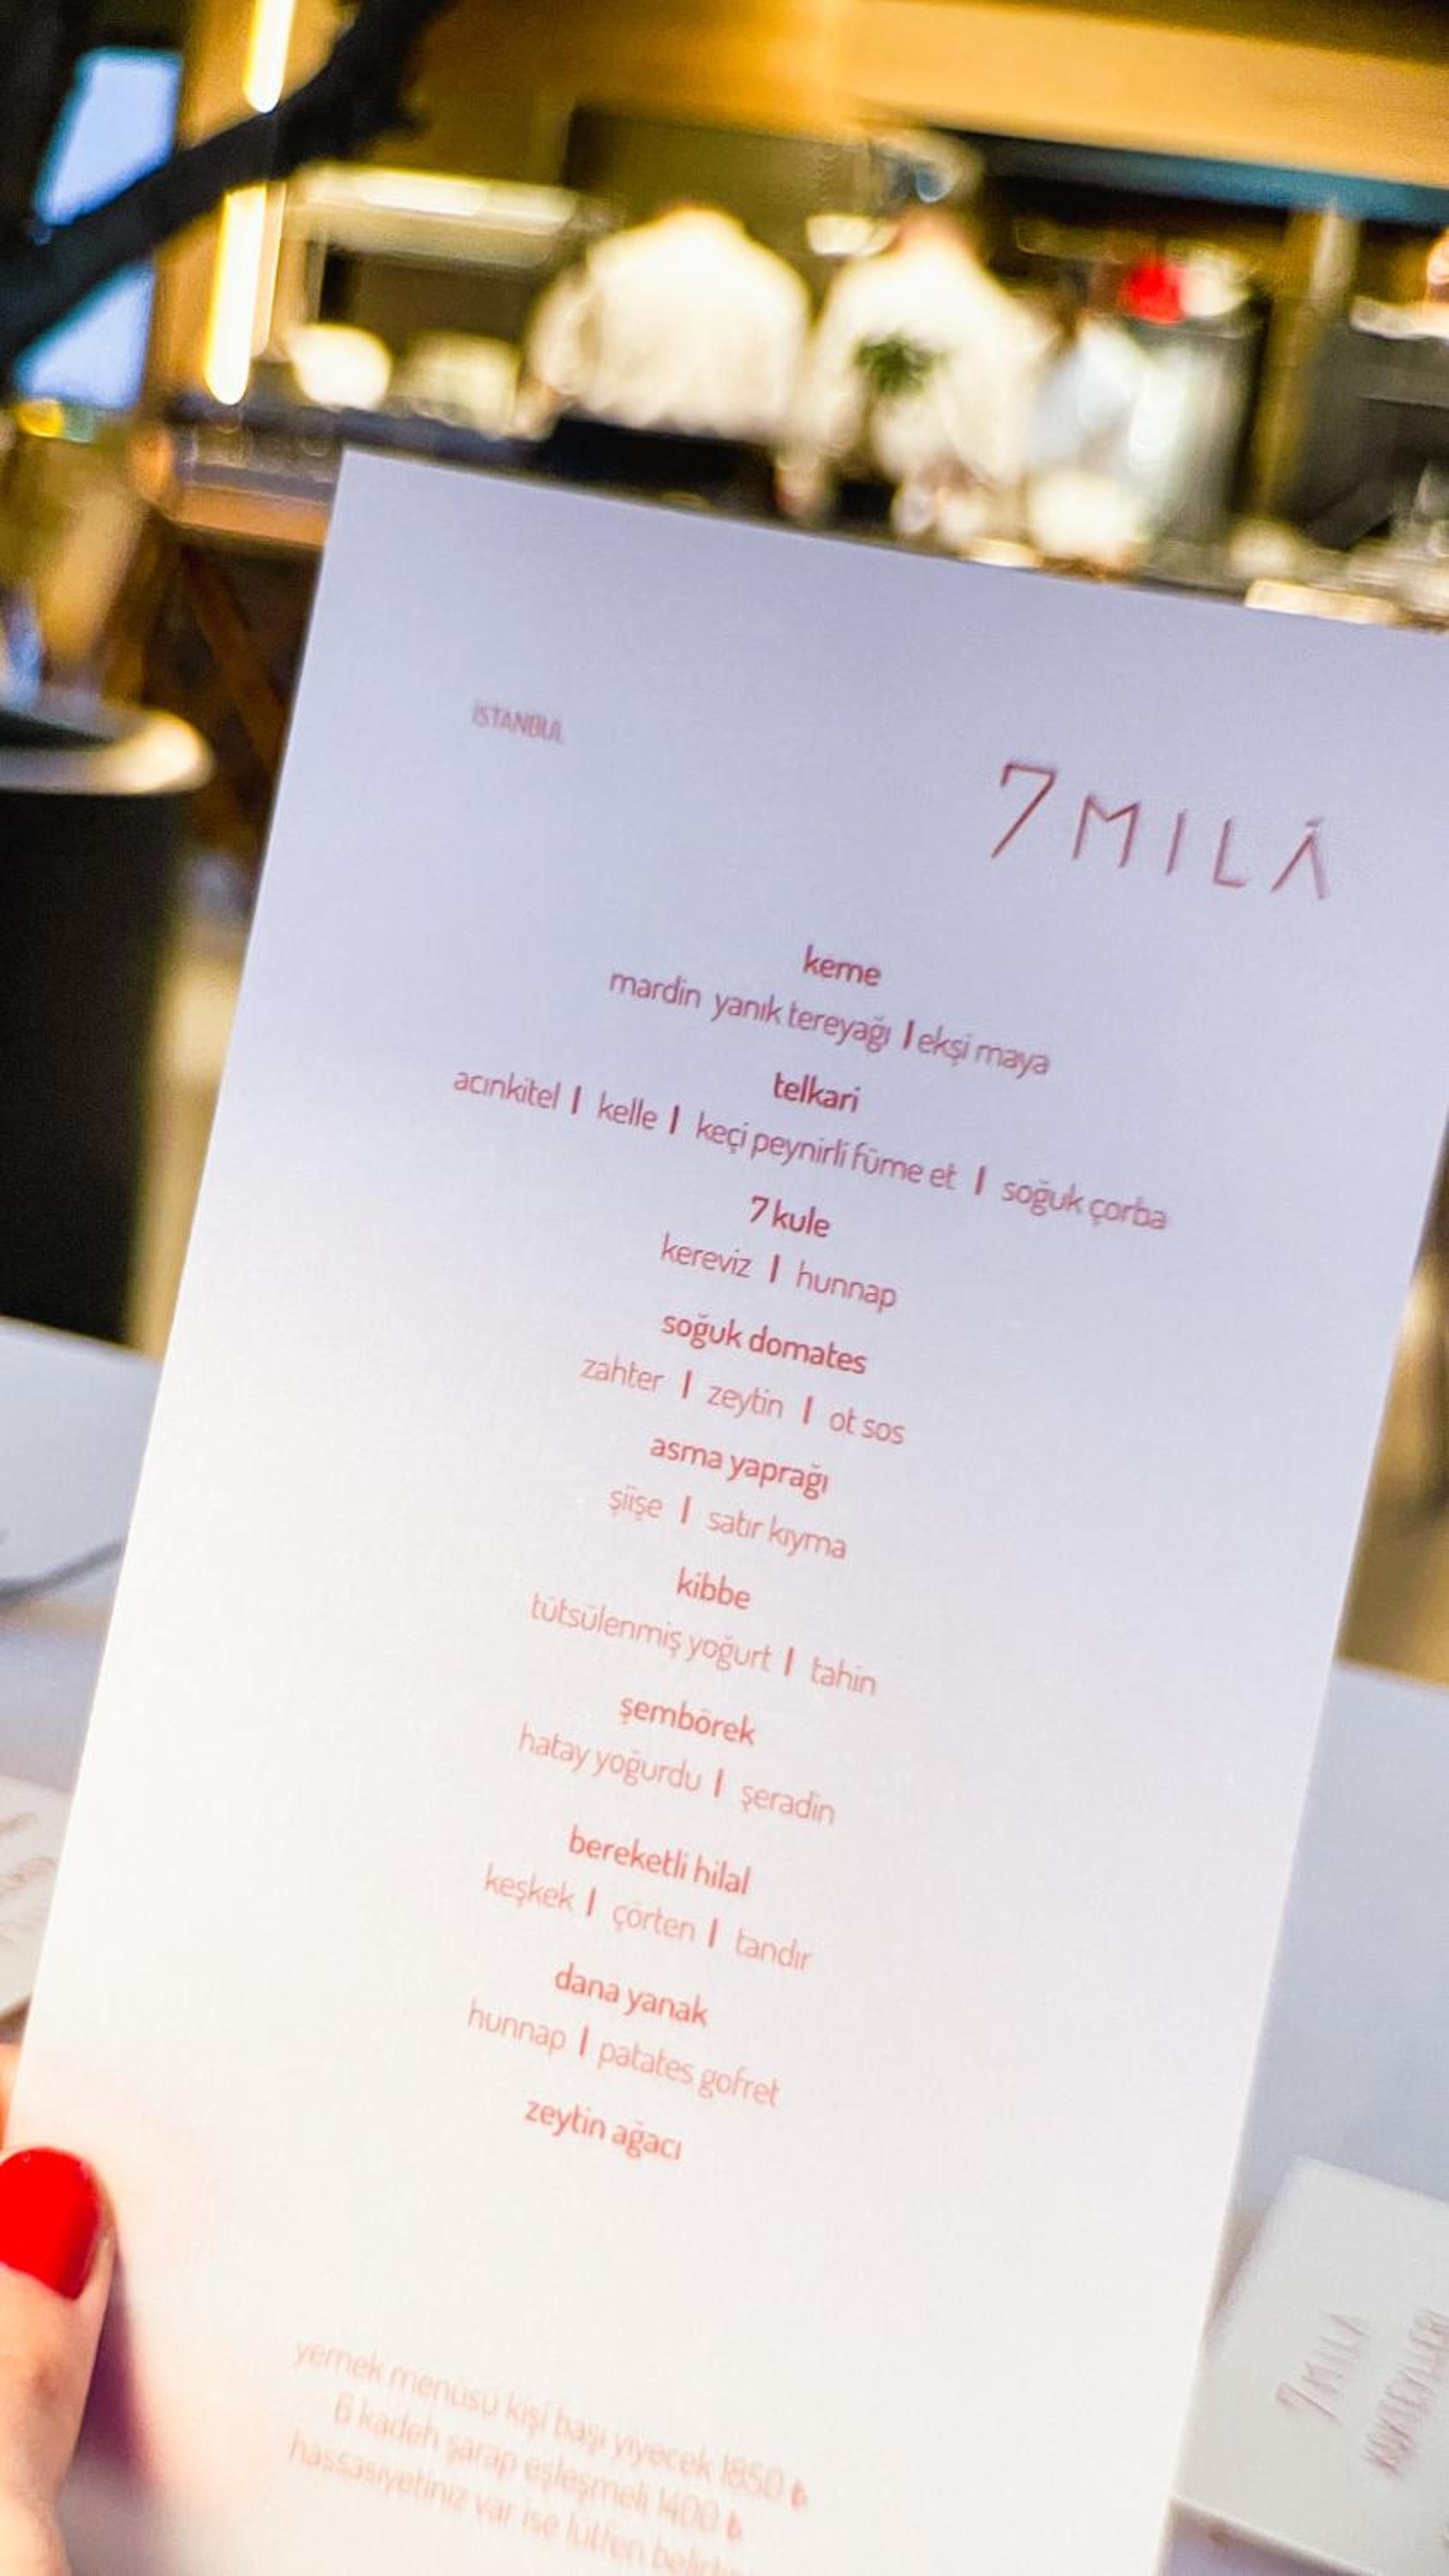 İSTANBUL
7MILÁ
keme
mardin yanık tereyağı | ekşi maya
telkari
acınkitel | kelle | keçi peynirli füme et | soğuk çorba
7 kule
kereviz | hunnap
soğuk domates
zahter | zeytin | ot sos
asma yaprağı
şiişe | satır kıyma
kibbe
tütsülenmiş yoğurt | tahin
şembörek
hatay yoğurdu | şeradin
bereketli hilal
keşkek | çörten | tandır
dana yanak
hunnap | patates gofret
zeytin ağacı
yemek menüsü kişi başı yiyecek 1850 ₺
6 kadeh şarap eşleşmeli 1400 ₺
hassasiyetiniz var ise lütfen
7MILA